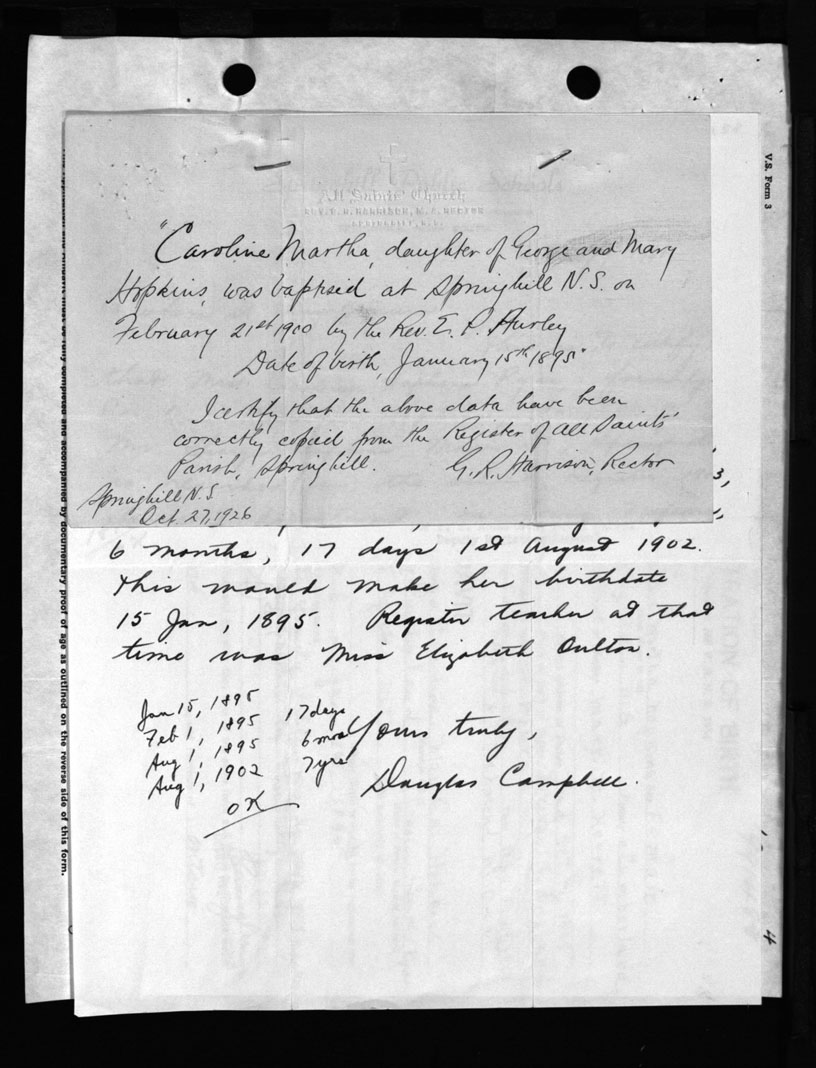 V.S. Form 3
All Saints' Church
"Caroline Martha, daughter of George and Mary
Hopkins, was baptised at Springhill N.S. on
February 21st 1900 by the Rev. E. P. Hurley
Date of birth, January 15th 1895"
I certify that the above data have been
correctly copied from the Register of All Saints'
Parish, Springhill. G. R. Harrison, Rector
Springhill N.S
Oct. 27, 1926
6 months, 17 days 1st August 1902.
this would make her birthdate
15 Jan, 1895. Register teacher at that
time was Miss Elizabeth Oulton.
Jan 15, 1895
Feb 1, 1895 17 days
Aug 1, 1895 6 mos
Aug 1, 1902 7 yrs
OK
Yours truly,
Douglas Campbell.
must be fully completed and accompanied by documentary proof of age as outlined on the reverse side of this form.
4